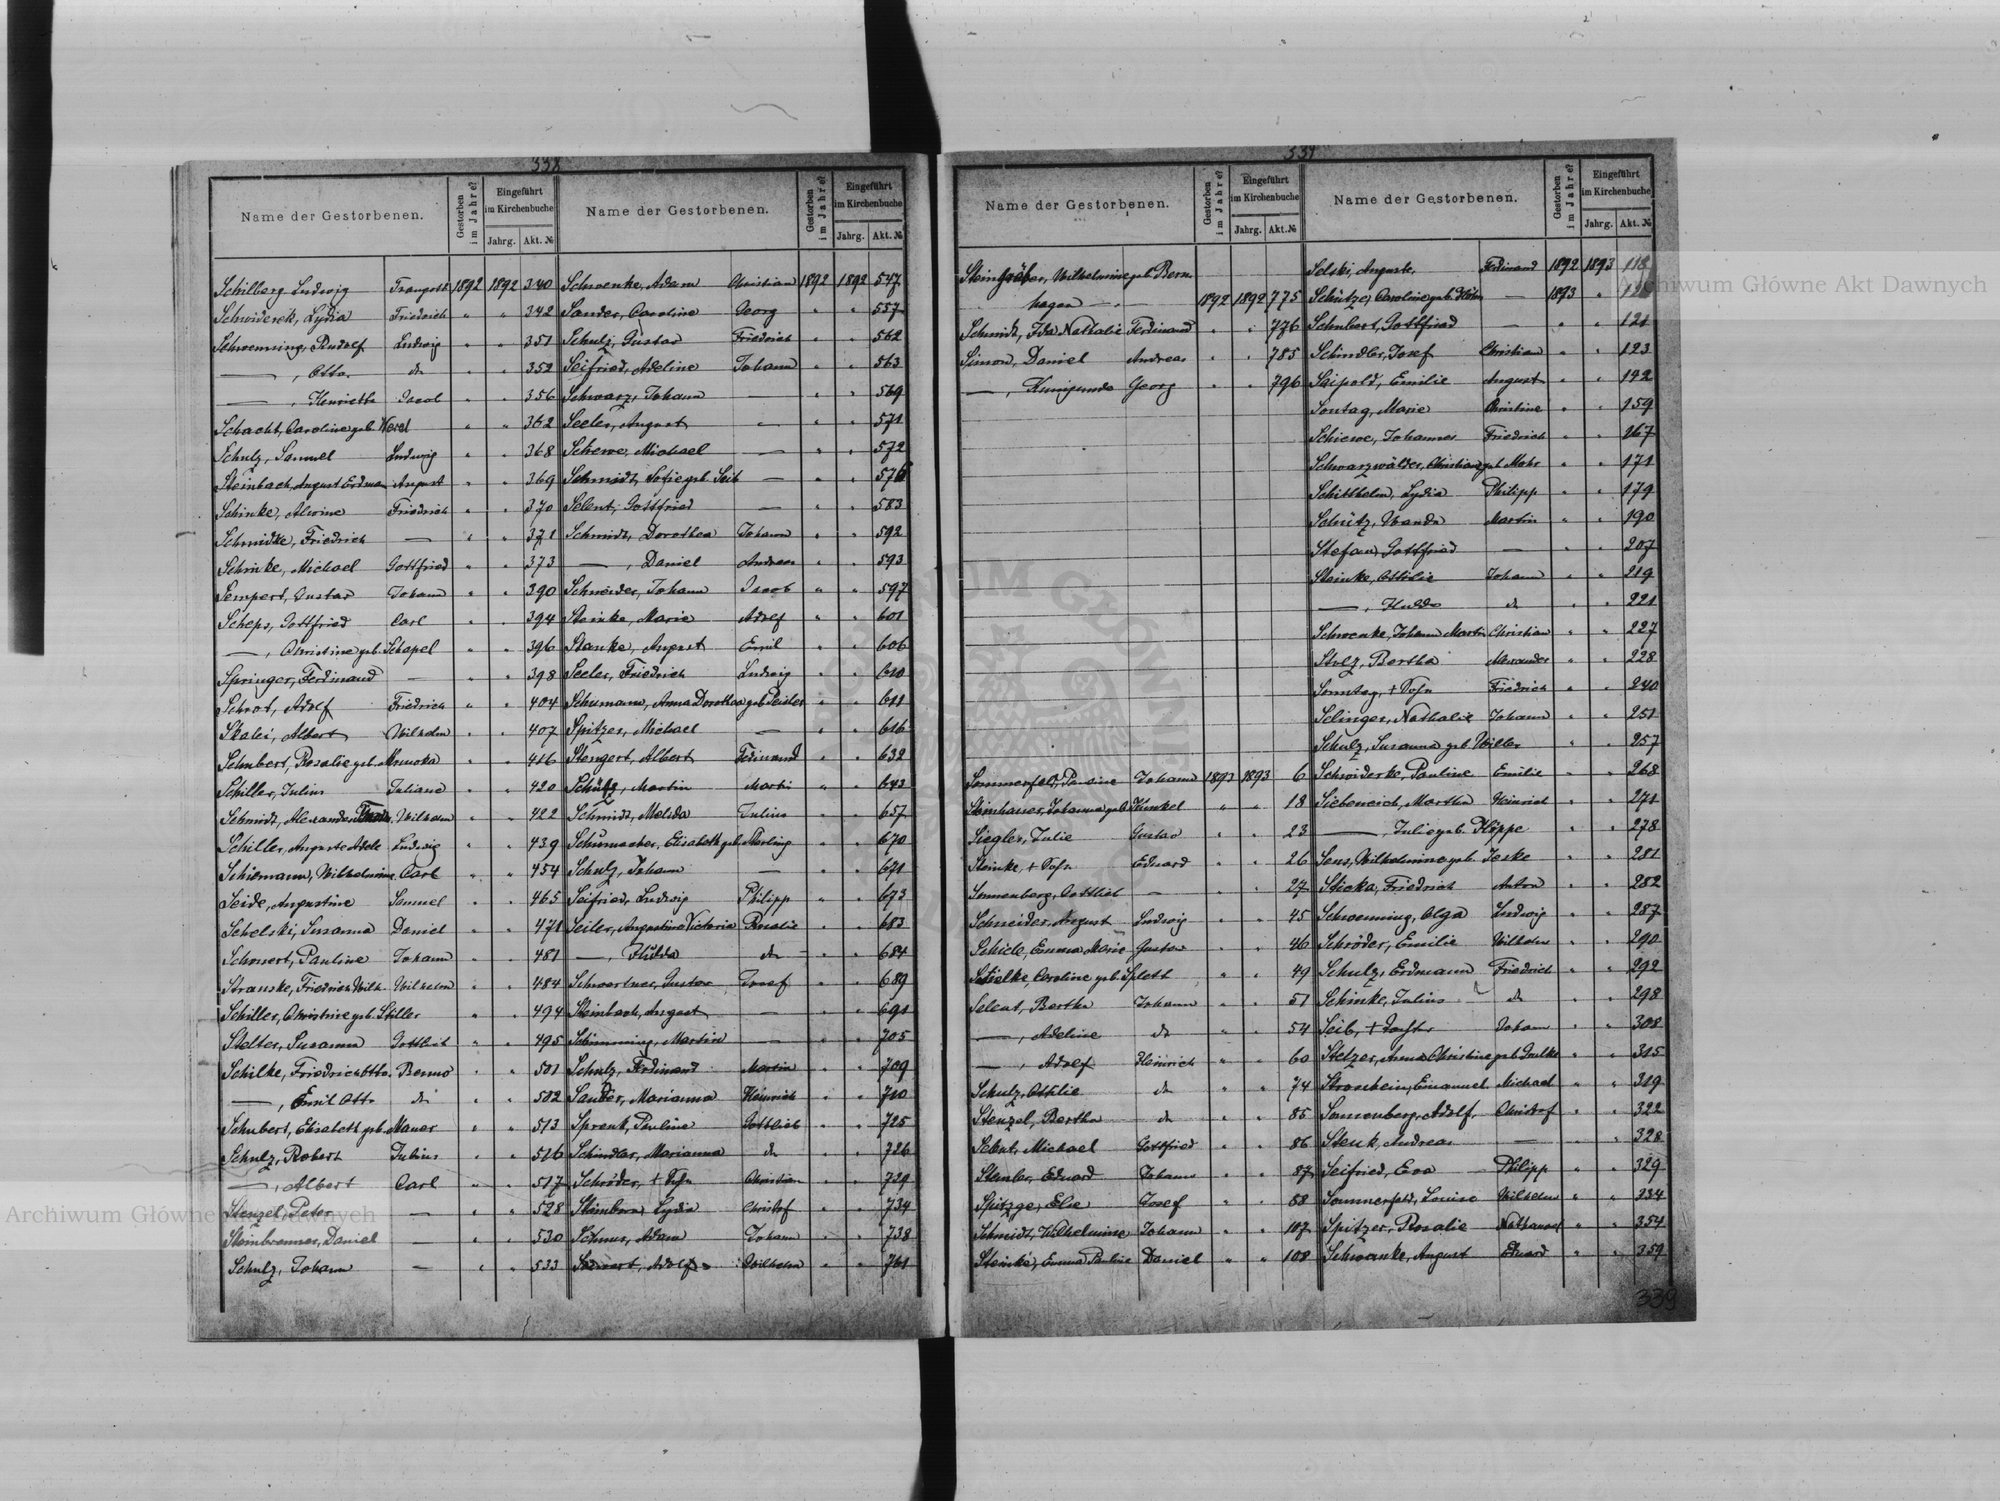 338
Name der Gestorbenen.
Gestorben im Jahre?
Eingeführt im Kirchenbuche
Jahrg.
Akt. №
Schilberg Ludwig Traugott 1892 1892 340
Schwiderek, Lydia Friedrich " " 342
Schwenning, Rudolf Ludwig " " 351
—, Otto. do " " 352
—, Henriette Jacob " " 356
Schacht, Caroline geb. " " 362
Schulz, Samuel Ludwig " " 368
Steinbach, August Erdman August " " 369
Schinke, Alwine Friedrich " " 370
Schmidke, Friedrich — " " 371
Schinke, Michael Gottfried " " 373
Sempert, Gustav Johann " " 390
Scheps, Gottfried Carl " " 394
—, Christine geb. Schapel " " 396
Springer, Ferdinand — " " 398
Schrot, Adolf Friedrich " " 404
Skalei, Albert Wilhelm " " 407
Schubert, Rosalie geb. " " 416
Schiller, Julius Juliane " " 420
Schmidt, Alexander Wilhelm " " 422
Schiller, Auguste Adele Ludwig " " 439
Schiemann, Wilhelmine Carl " " 454
Seide, Augustine Samuel " " 465
Schelski, Susanna Daniel " " 471
Schonert, Pauline Johann " " 481
Stranske, Friedrich Wilh. Wilhelm " " 484
Schiller, Christine geb. Stiller " " 494
Stelter, Susanna Gottlieb " " 495
Schilke, Friedrich Otto. Benno " " 501
—, Emil Otto do " " 502
Schubert, Elisabeth geb. Mauer " " 513
Schulz, Robert Julius " " 516
—, Albert Carl " " 517
Stenzel, Peter — " " 528
Steinbrenner, Daniel — " " 530
Schulz, Johann — " " 533
Name der Gestorbenen.
Gestorben im Jahre?
Eingeführt im Kirchenbuche
Jahrg.
Akt. №
Schwenke, Adam Christian 1892 1892 547
Sander, Caroline Georg " " 557
Schulz, Gustav Friedrich " " 562
Seifried, Adeline Johann " " 563
Schwarz, Johann — " " 569
Seeler, August — " " 571
Schewe, Michael — " " 572
Schmidt, Sofie geb. Seib — " "
Selent, Gottfried — " " 583
Schmidt, Dorothea Johann " " 592
—, Daniel Andreas " " 593
Schneider, Johann Jacob " " 597
Steinke, Marie Adolf " " 601
Stanke, August Emil " " 606
Seeler, Friedrich Ludwig " " 610
Schumann, Anna Dorothea geb. Peisler " " 611
Spitzer, Michael — " " 616
Stengert, Albert Ferdinand " " 632
Schütz, Martin Martin " " 643
Schmidt, Melida Julius " " 657
Schumacher, Elisabeth geb. Sterling " " 670
Schulz, Johann — " " 671
Seifried, Ludwig Philipp " " 673
Seiler, Augustine Victoria Rosalie " " 683
—, Hulda do " " 684
Schwertner, Gustav Josef " " 689
Steinbach, August — " " 691
Schimming, Martin — " " 705
Schulz, Ferdinand Martin " " 709
Sauter, Marianna Heinrich " " 710
Sprenk, Pauline Gottlieb " " 725
Schindler, Marianna do " " 726
Schröder, + Christian " " 729
Steinborn, Lydia Christof " " 734
Adam Johann " " 738
Adolf Wilhelm " " 761
339
Name der Gestorbenen.
Gestorben im Jahre?
Eingeführt im Kirchenbuche
Jahrg.
Akt. №
Steingräber, Wilhelmine geb. Bern
hagen — 1892 1892 775
Schmidt, Ida Nathalie Ferdinand " " 776
Simon, Daniel Andreas " " 785
—, Kunigunde Georg " " 796
Sommerfeld, Pauline Johann 1893 1893 6
Steinhauer, Johanna geb. Kunkel " " 18
Siegler, Julie Gustav " " 23
Steinke, + Eduard " " 26
Sonnenberg, Gottlieb — " " 27
Schneider, August Ludwig " " 45
Schiele, Emma Marie Gustav " " 46
Stielke, Caroline geb. Splett " " 49
Selent, Bertha Johann " " 51
—, Adeline do " " 54
—, Adolf Heinrich " " 60
Schulz, Ottilie do " " 74
Stenzel, Bertha do " " 85
Selent, Michael Gottfried " " 86
Stemler, Eduard Johann " " 87
Spitzge, Elie Josef " " 88
Schmidt, Wilhelmine Johann " " 107
Steinke, Emma Pauline Daniel " " 108
Name der Gestorbenen.
Gestorben im Jahre?
Eingeführt im Kirchenbuche
Jahrg.
Akt. №
Selski, Auguste. Ferdinand 1892 1893 118
Schütze, Caroline geb. — 1893 "
Schubert, Gottfried — " " 121
Schindler, Josef Christian " " 123
Saipold, Emilie August " " 142
Sontag, Marie Christine " " 159
Schiewe, Johannes Friedrich " " 167
Schwarzwälder, Christiane geb. Mohr " " 171
Schitthelm, Lydia Philipp " " 179
Schütz, Wanda Martin " " 190
Stefan, Gottfried — " " 207
Steinke, Ottilie Johann " " 219
—, Hulda do " " 221
Schwenke, Johann Martin Christian " " 227
Stolz, Bertha Alexander " " 228
Sonntag, + Friedrich " " 240
Selinger, Nathalie Johann " " 251
Schulz, Susanna geb. Willer " " 257
Schwiderke, Pauline Emilie " " 268
Siebeneich, Martha Heinrich " " 271
—, Julie geb. Höppe " " 278
Sens, Wilhelmine geb. Jeske " " 281
Sticka, Friedrich Anton " " 282
Schwenning, Olga Ludwig " " 287
Schröder, Emilie Wilhelm " " 290
Schulz, Erdmann Friedrich " " 292
Schinke, Julius do " " 298
Seib, + Johann " " 308
Stelzer, Anna Christine geb. " " 315
Stroschein, Emanuel Michael " " 319
Sonnenberg, Adolf. Christof " " 322
Stenk, Andreas — " " 328
Seifried, Eva Philipp " " 329
Sommerfeld, Louise Wilhelm " " 334
Spitzer, Rosalie Nathanael " " 354
Schwanke, August Eduard " " 359
339
Archiwum Główne Akt Dawnych
Archiwum Główne Akt Dawnych